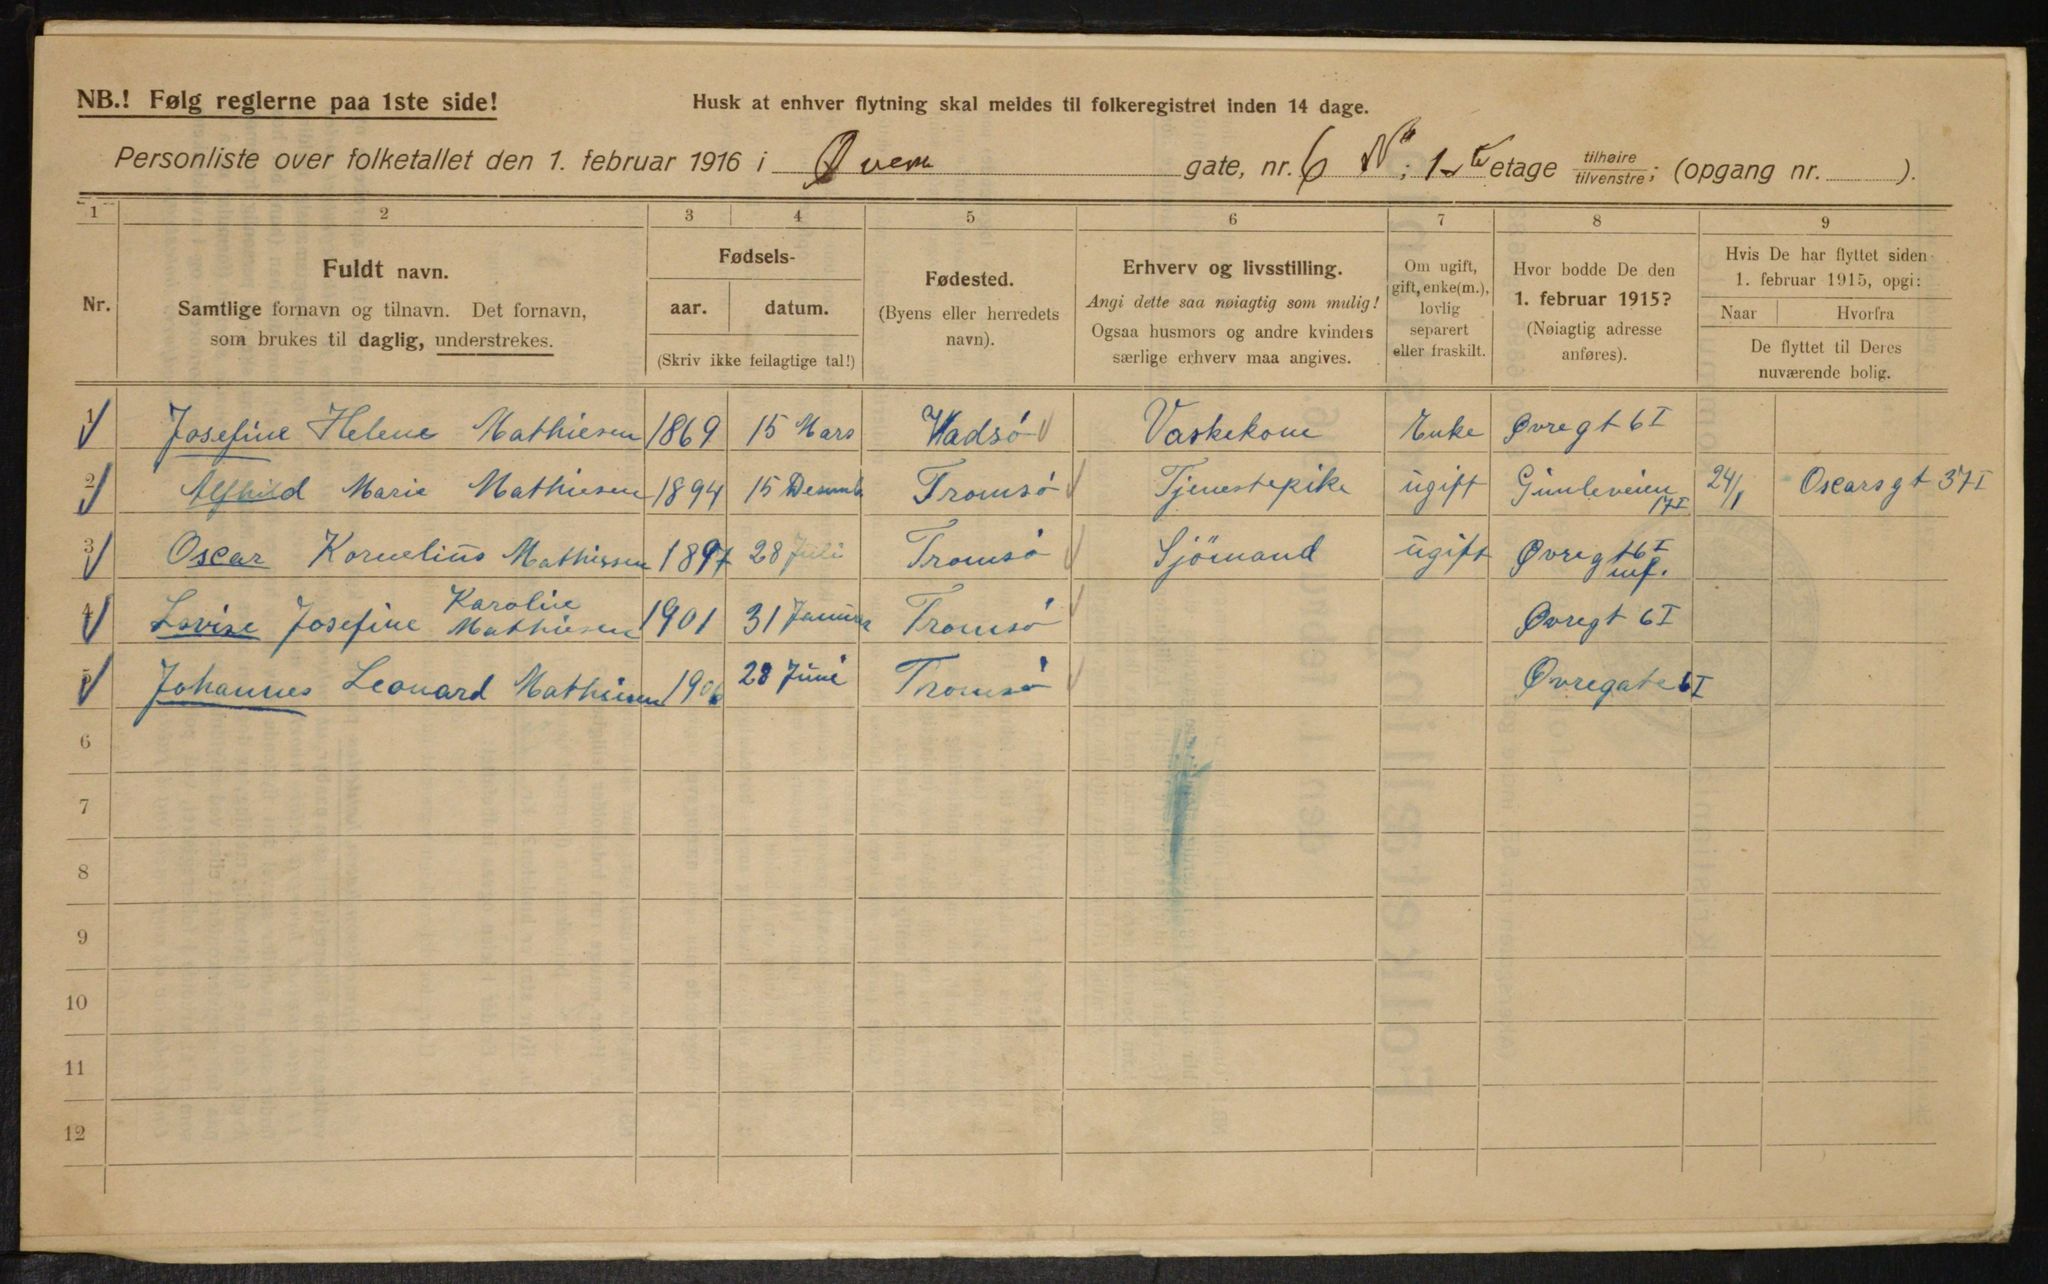 NB.! Følg reglerne paa 1ste side!
Husk at enhver flytning skal meldes til folkeregistret inden 14 dage.
Personliste over folketallet den 1. februar 1916 i Øvem gate, nr. 6 ; 1ste etage tilhøire tilvenstre; (opgang nr. ).
1 2 3 4 5 6 7 8 9
Nr.
Fuldt navn.
Samtlige fornavn og tilnavn. Det fornavn,
som brukes til daglig, understrekes.
Fødsels-
aar. datum.
(Skriv ikke feilagtige tal!)
Fødested.
(Byens eller herredets
navn).
Erhverv og livsstilling.
Angi dette saa nøiagtig som mulig!
Ogsaa husmors og andre kvinders
særlige erhverv maa angives.
Om ugift,
gift, enke(m.),
lovlig
separert
eller fraskilt.
Hvor bodde De den
1. februar 1915?
(Nøiagtig adresse
anføres).
Hvis De har flyttet siden
1. februar 1915, opgi:
Naar Hvorfra
De flyttet til Deres
nuværende bolig.
1 Josefine Helene Mathiesen 1869 15 Mars Wadsø Vaskekone Enke Øvregt 6 I
2 Alfhild Marie Mathiesen 1894 15 Desemb Tromsø Tjenestepike ugift Gimleveien 17 I 24/1 Oscarsgt 37 I
3 Oscar Kornelius Mathissen 1897 28 Juli Tromsø Sjömand ugift Øvregt 6 I
4 Lovise Josefine Karoline Mathiesen 1901 31 Januar Tromsø Øvregt 6 I
5 Johannes Leonard Mathiesen 1906 28 Juni Tromsø Øvregate 6 I
6
7
8
9
10
11
12